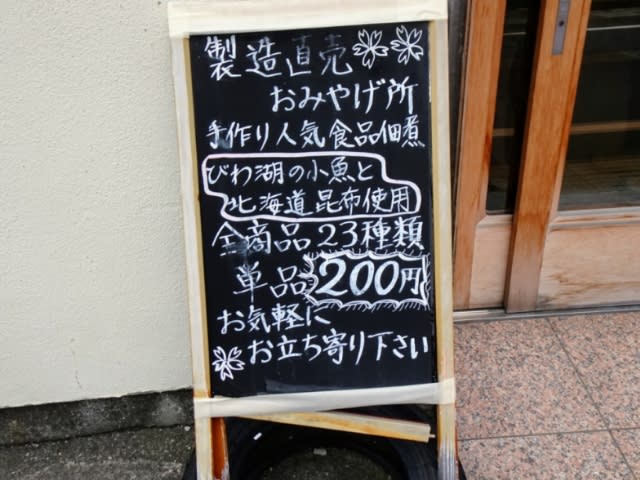 製造直売
おみやげ所
手作り人気食品佃煮
びわ湖の小魚と
北海道昆布使用
全商品23種類
単品200円
お気軽に
お立ち寄り下さい